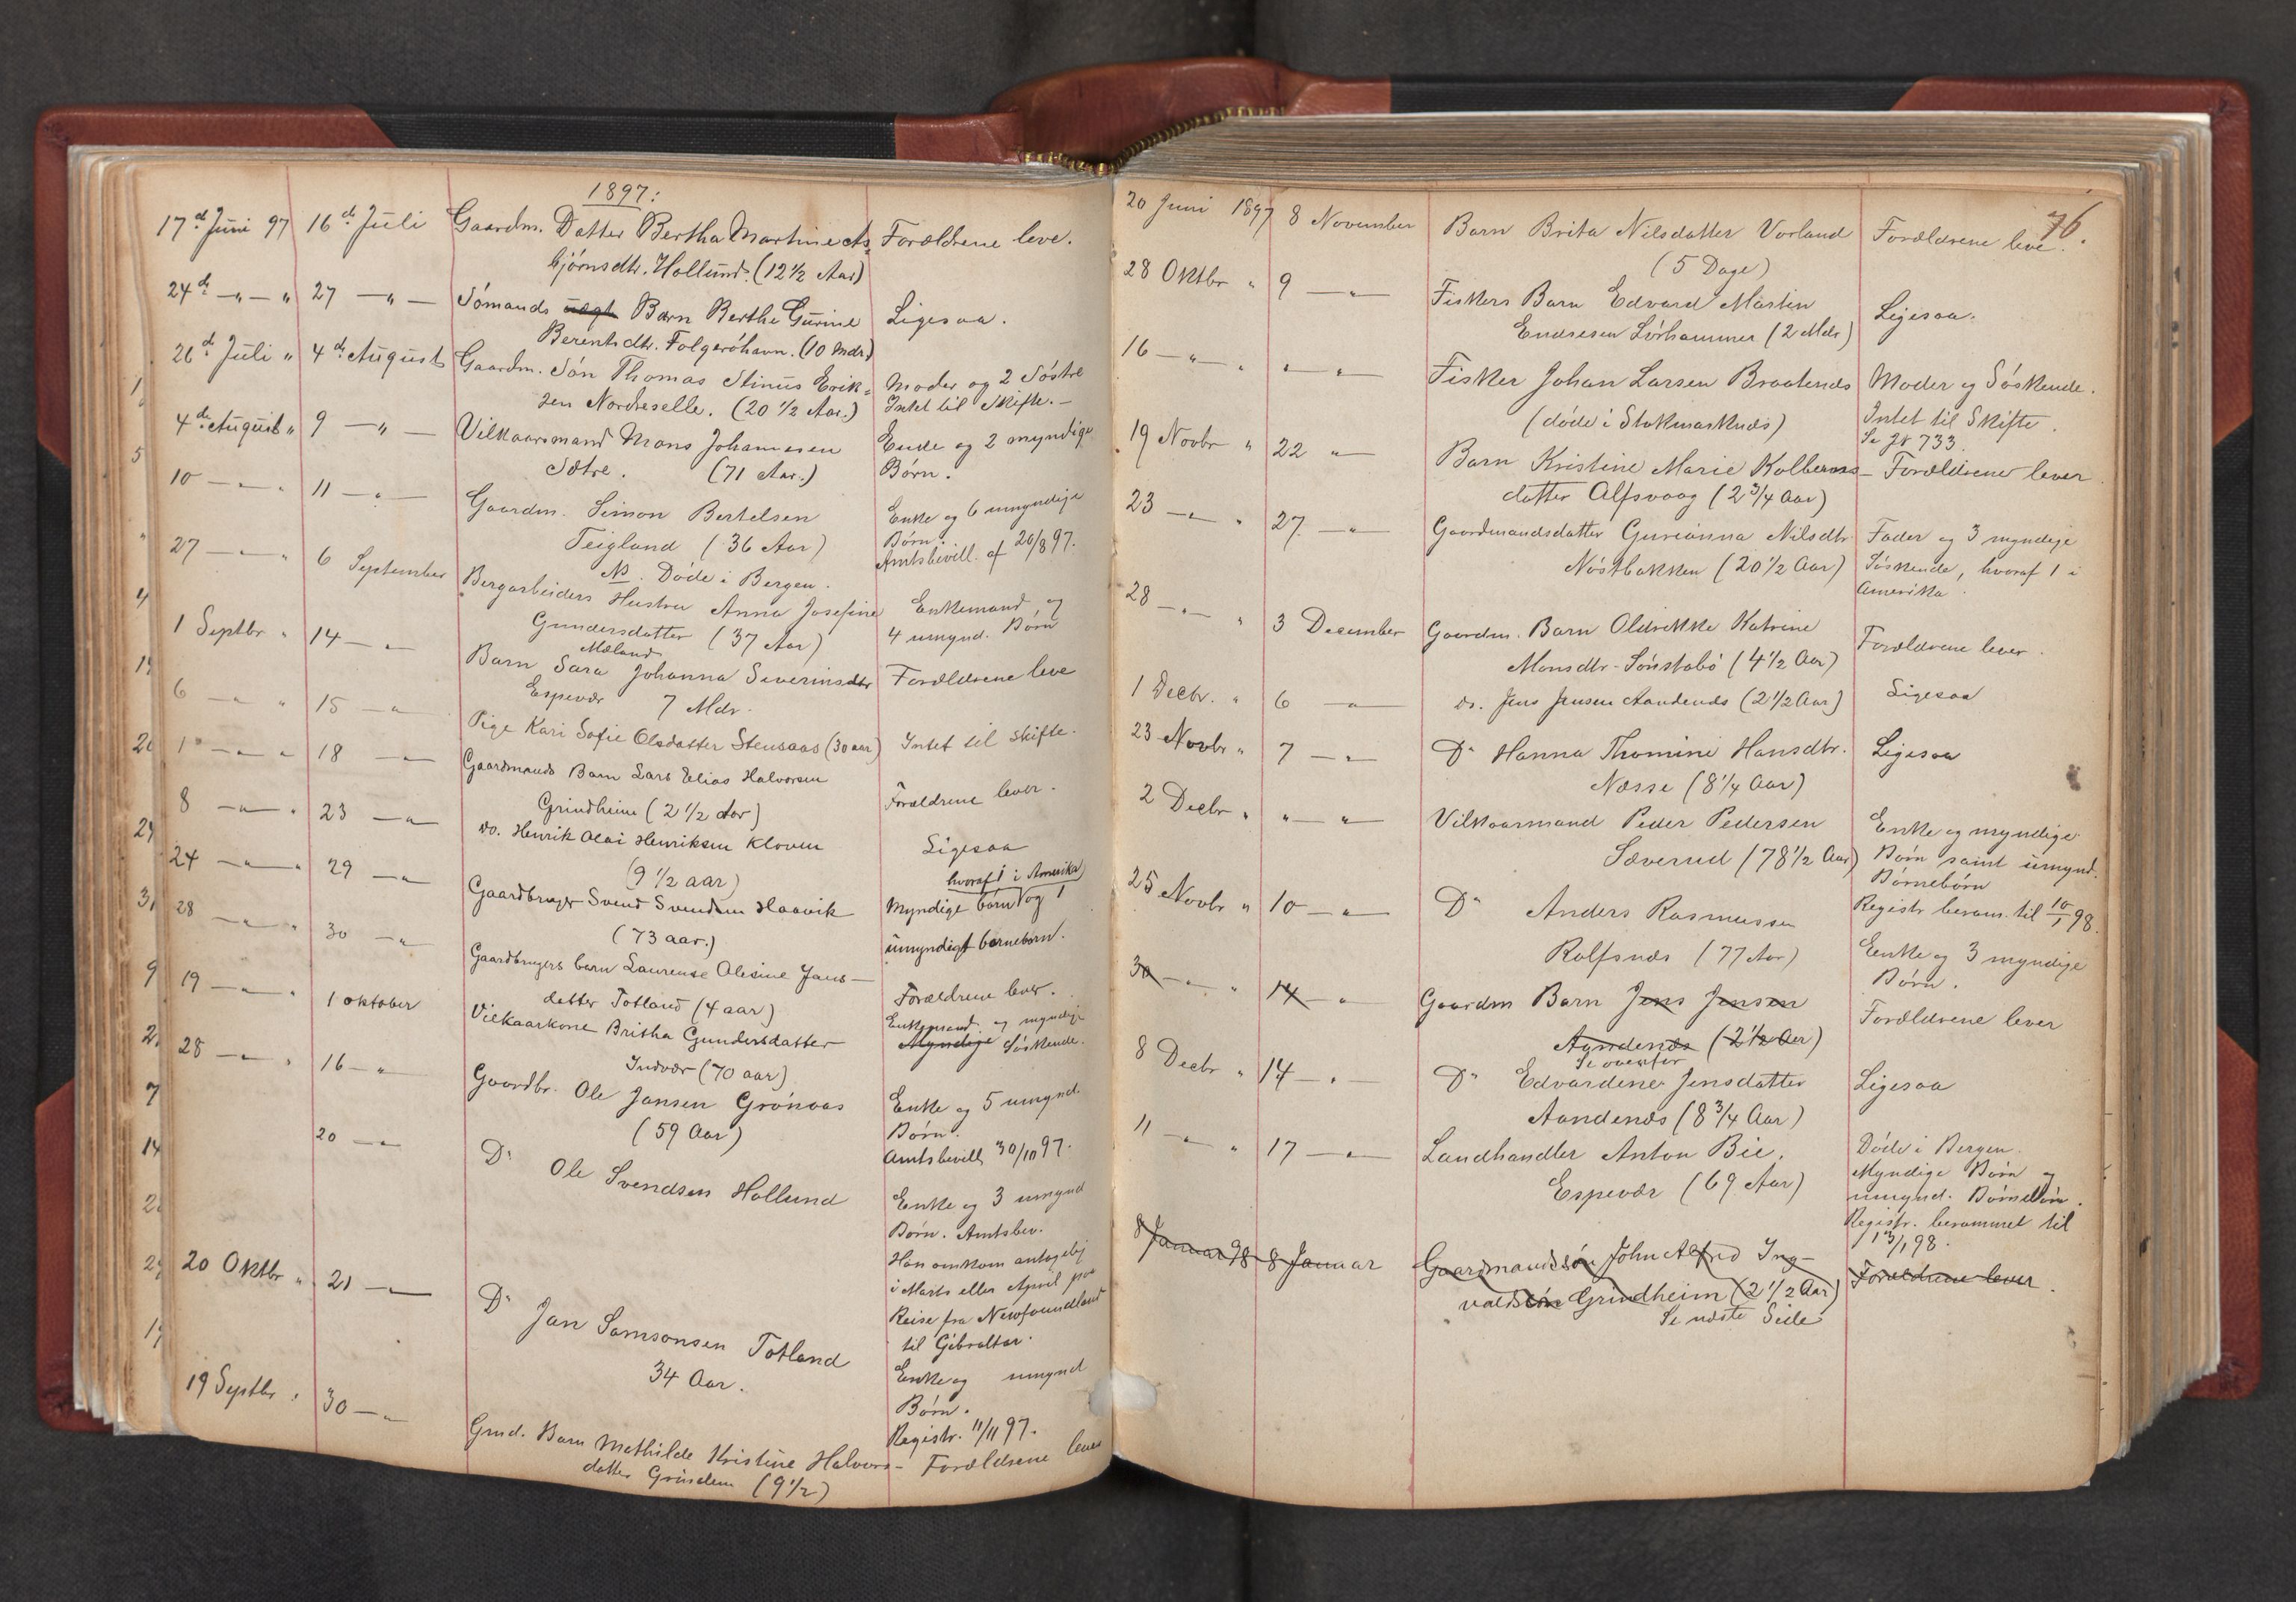 1897:
17d Juni 97 16d Juli Gaardm. Datter Bertha Martine As= Forældrene leve.
bjørnsdtr. Hollund. (12 1/2 Aar)
24d — " — " 27 — " — Sømands uægte Barn Berthe Gurine Ligesaa.
Berentsdtr. Folgerøhavn. (10 Mdr.)
26d Juli " 4de August Gaardm. Søn Thomas Stinus Erik= Moder og 2 Søstre
sen Nordreselle. (20 1/2 Aar.) Intet til Skifte. —
4de August " 9 — " — Vilkaarsmand Mons Johannesen Enke og 2 myndige
Sætre. (71 Aar.) Børn.
10 — " — " 11 — " — Gaardm. Simon Bertelsen Enke og 6 umyndige
Teigland (36 Aar) Børn.
NB. Døde i Bergen. Amtsbevill. af 26/8 97.
27 — " — " 6 September Bergarbeiders Hustru Anna Josefine Enkemand, og
Gundersdatter (37 Aar) 4 umynd. Børn
Mæland
1 Septbr. " 14 — " Barn Sara Johanna Severinsdtr Forældrene leve
Espevær 7 Mdr.
6 — " — " 15 — " Pige Kari Sofie Olsdatter Stensaas (30 aar) Intet til skifte.
1 — " — " 18 — " Gaardmands Barn Lars Elias Halvorsen
Grindheim (2 1/2 Aar) Forældrene lever.
8 — " — " 23 — " do. Henrik Olai Henriksen Kloven Ligesaa
(9 1/2 aar)
24 — " — " 29 — " Gaardbruger Svend Svendsen Haavik Myndige børn hvoraf 1 i Amerika og 1
(73 aar.) umyndigt barnebarn.
28 — " — " 30 — " Gaardbrugers barn Laurense Olesine Jans-
datter Totland (4 aar) Forældrene lever.
19 — " — " 1 oktober Vilkaarkone Britha Gundersdatter Enkemand og myndige
Indvær (70 aar) Myndige Søskende.
28 — " — " 16 — " Gaardbr. Ole Jansen Grønaas Enke og 5 umynd.
(59 Aar) Børn.
Amtsbevill. 30/10 97.
20 — " Do Ole Svendsen Hollund Enke og 3 umynd
Børn. Amtsbev.
Han omkom antagelig
i Marts eller April paa
Reise fra Newfoundland
til Gibraltar.
20 Oktbr " 21 — " Do Jan Samsonsen Totland Enke og umynd
34 Aar. Børn.
Registr. 11/11 97.
19 Septbr. " 30 — " Grmd. Barn Mathilde Kristine Halvors- Forældrene lever
datter (9 1/2)
76.
20 Juni 1897 8 November Barn Brita Nilsdatter Vorland Forældrene leve.
(5 Dage)
28 Oktbr " 9 — " — Fiskers Barn Edvard Martin Ligesaa.
Endresen Lørhammer (2 Mdr)
16 — " — " " — " — Fisker Johan Larsen Braatenæs Moder og Søskende.
(døde i Stokmarknæs) Intet til Skifte.
Se Jr 733.
19 Novbr " 22 " — Barn Kristine Marie Kolbens- Forældrene lever.
datter Alfsvaag (2 3/4 Aar)
23 — " — " 27 — " — Gaardmandsdatter Gurianna Nilsdtr. Fader og 3 myndige
Nøstbakken (20 1/2 Aar) Søskende, hvoraf 1 i
Amerika.
28 — " — " 3 December Gaardm. Barn Oldrikke Katrine Forældrene lever.
Monsdtr. Sønstabø (4 1/2 Aar)
1 Decbr. " 6 — " — do. Jens Jensen Aandenæs (2 1/2 Aar) Ligesaa
23 Novbr " 7 — " — Do Hanna Thomine Hansdtr. Ligesaa
Næsse (8 1/4 Aar)
2 Decbr " " — " — Vilkaarmand Peder Pedersen Enke og myndige
Sæverud (78 1/2 Aar) Børn samt umynd.
Børnebørn
Registr. beram. til 10/1 98.
25 Novbr " 10 — " — Do Anders Rasmussen
Rolfsnæs (77 Aar) Enke og 3 myndige
Børn.
30 — " — " 14 — " Gaardm Barn Jens Jensen Forældrene lever
Aandenæs (2 1/2 Aar)
Se ovenfor
8 Decbr " 14 — " — Do Edvardine Jensdatter Ligesaa
Aandenæs (8 3/4 Aar)
11 — " — " 17 — " — Landhandler Anton Bie. Døde i Bergen.
Espevær (69 Aar) Myndige Børn og
umynd. Børnebørn.
Registr. berammet til
13/1 98.
8 Januar 98 8 Januar Gaardmandssøn John Alfred Ing-
valdsen Grindheim (2 1/2 Aar) Forældrene lever.
Se næste Side